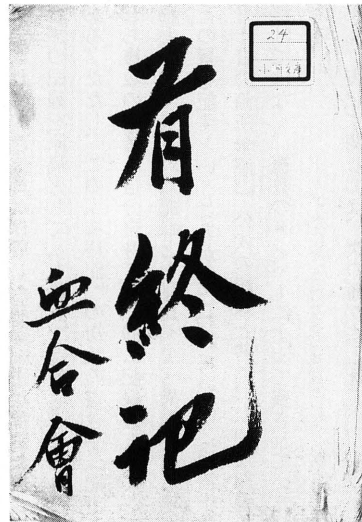 24
看終記
血合會